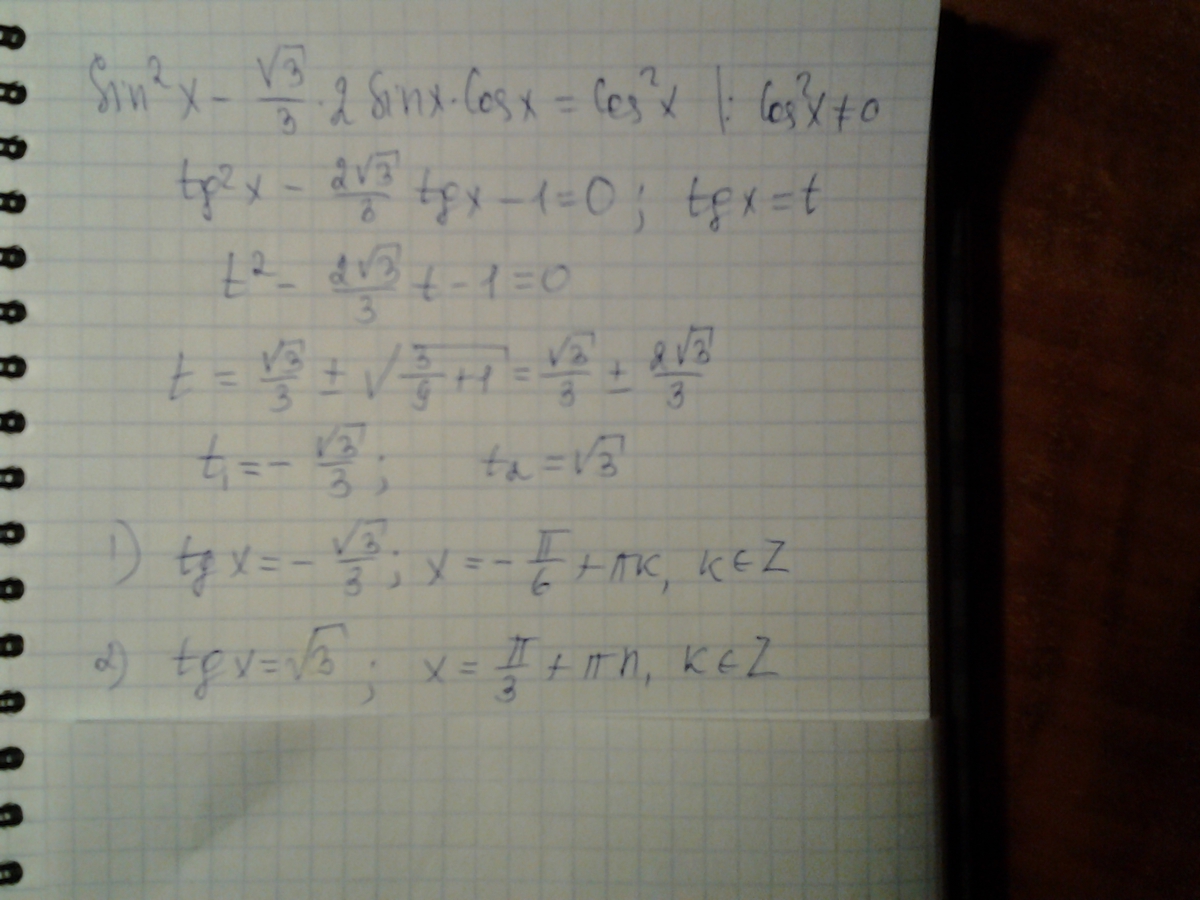 sin²x − √3/3 · 2 sinx · cosx = cos²x |: cos²x ≠ 0
tg²x − 2√3/3 tgx − 1 = 0 ; tgx = t
t² − 2√3/3 t − 1 = 0
t = √3/3 ± √(3/9 + 1) = √3/3 ± 2√3/3
t₁ = − √3/3 ; t₂ = √3
1) tgx = − √3/3 ; x = − π/6 + πк, к ∈ Z
2) tgx = √3 ; x = π/3 + πn, к ∈ Z